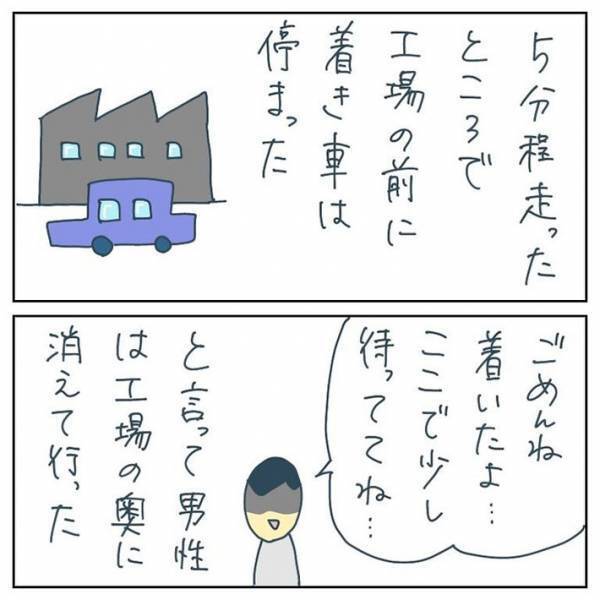 5分程走った
ところで
工場の前に
着き車は
停まった
ごめんね
着いたよ…
ここで少し
待っててね…
と言って男性
は工場の奥に
消えて行った